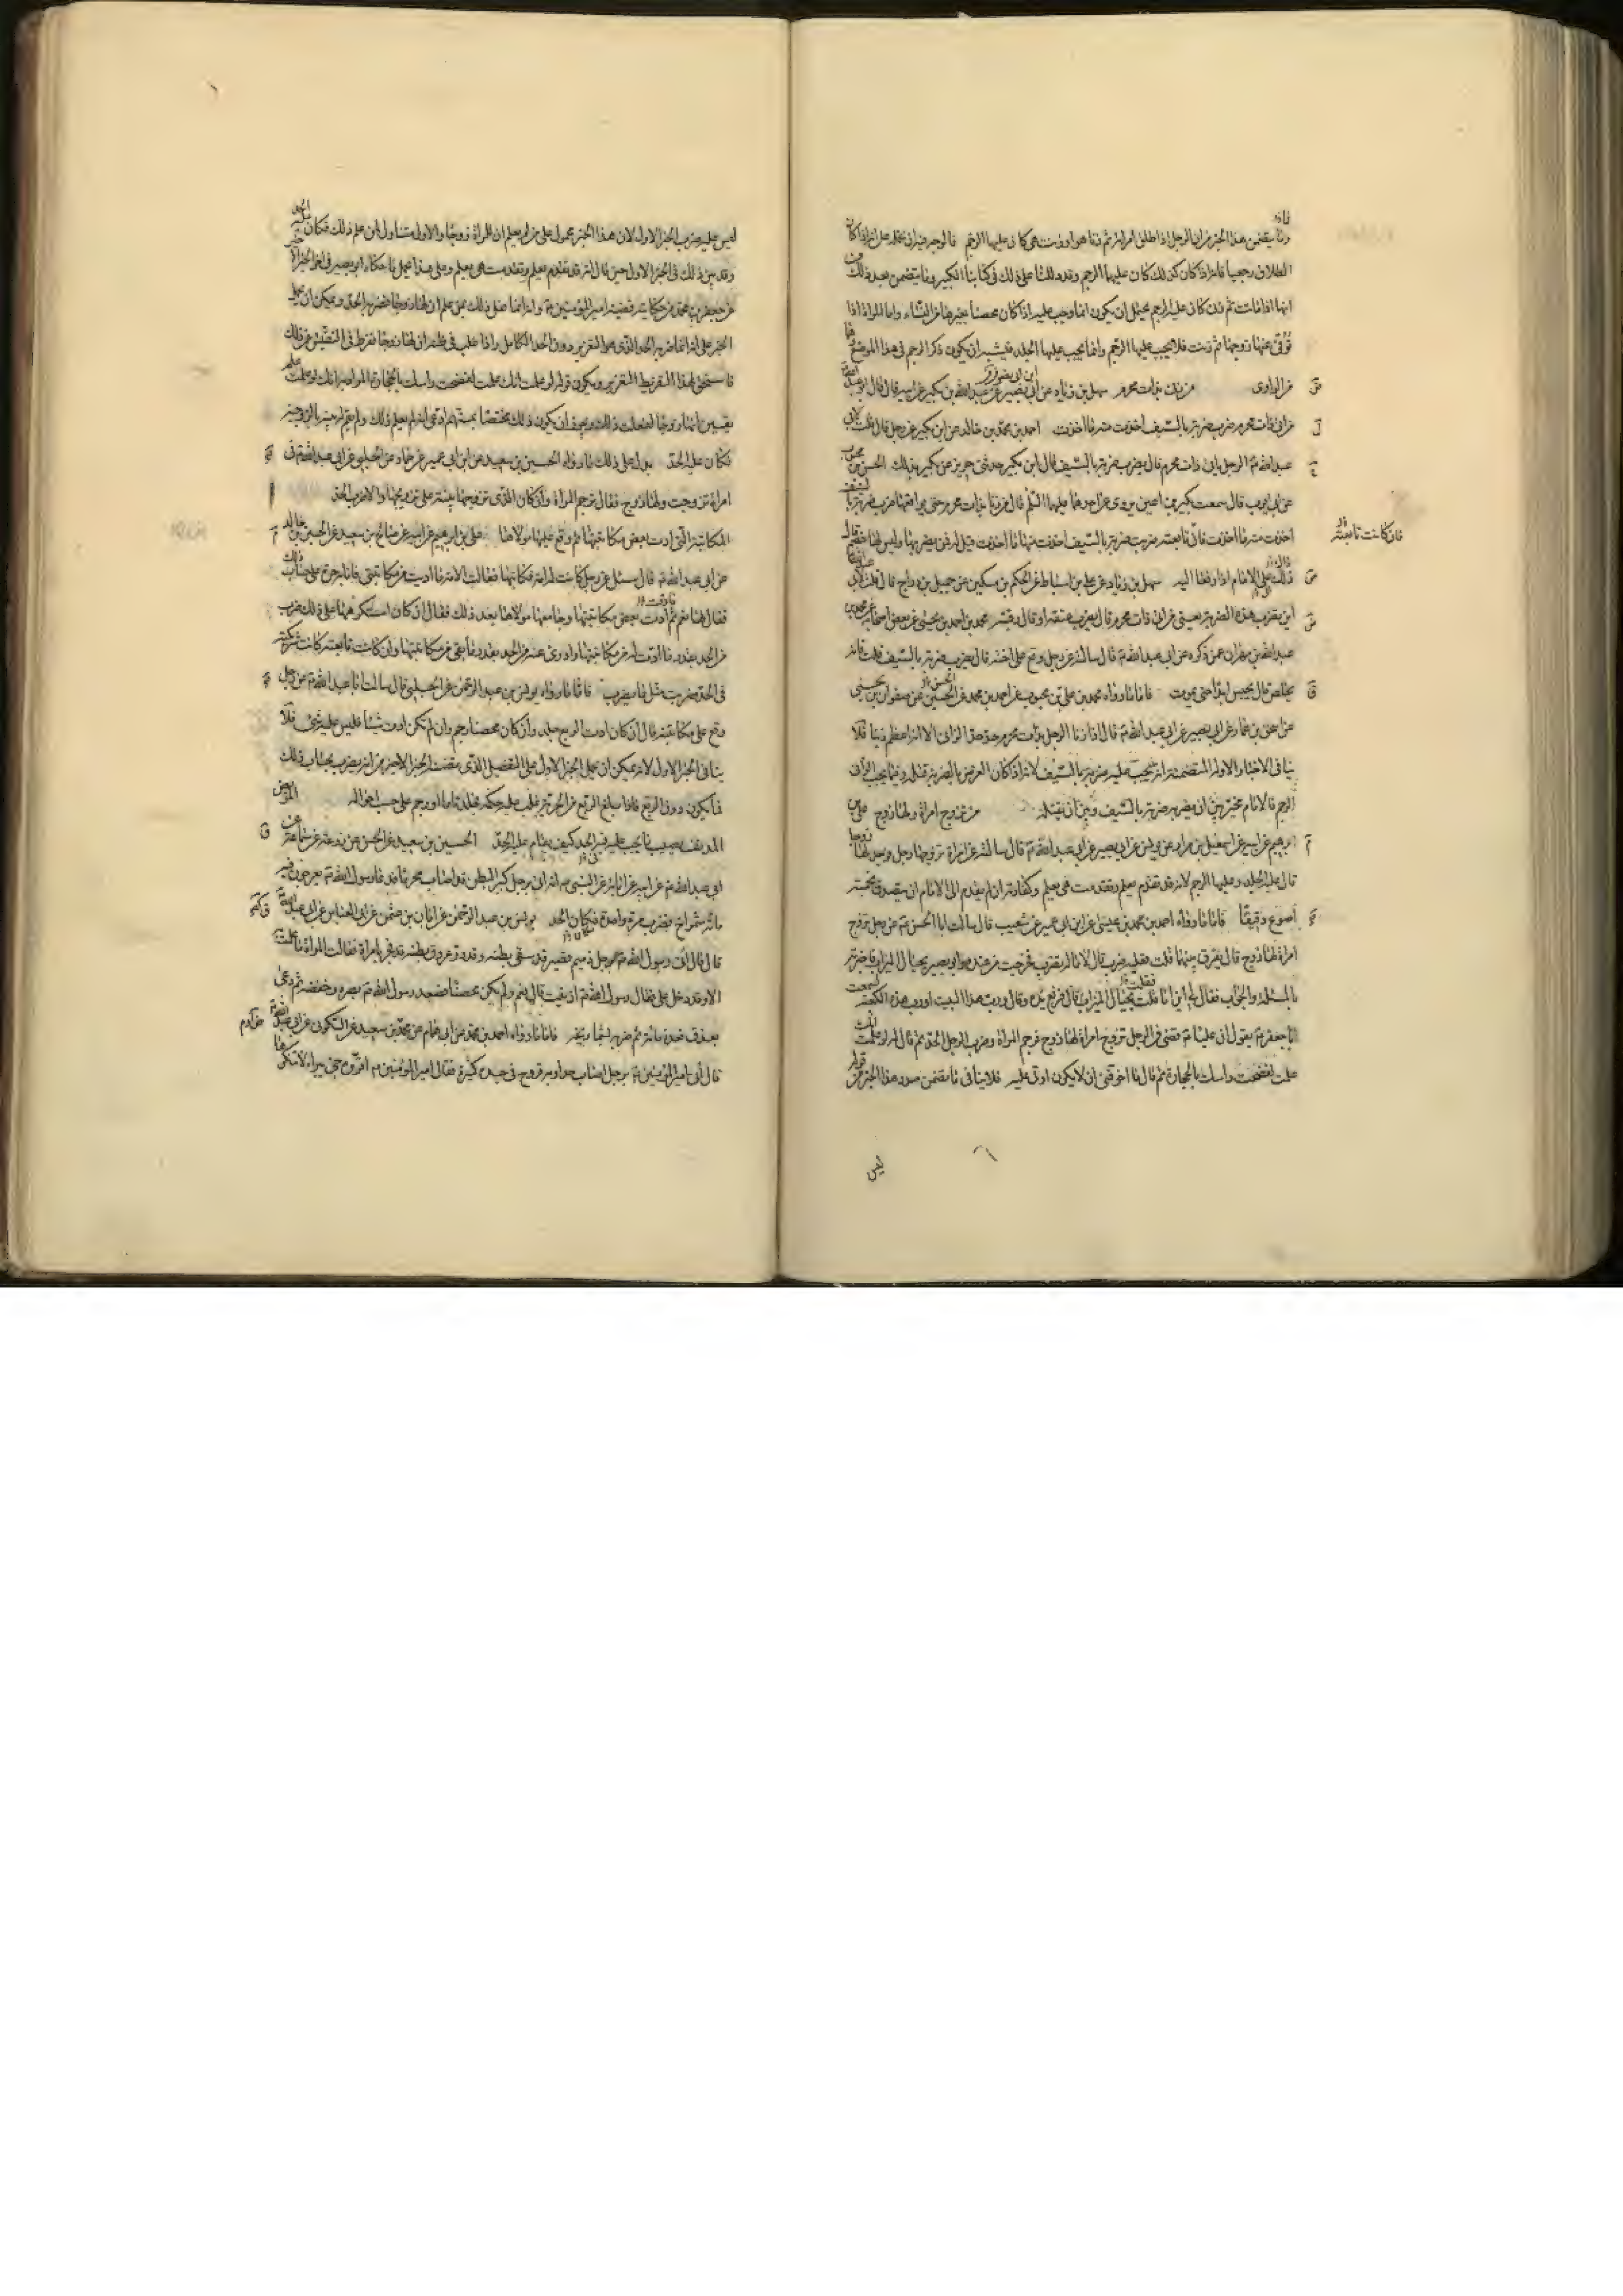 وما يتضمن هذا الخبر من ان الرجل اذا طلق امراته ثم زنا هو او زنت هي كان عليهما الرجم فالوجه فيه ان نحمله على انه اذا كان
الطلاق رجعيا فانه اذا كان كذلك كان عليهما الرجم وقد دللنا على ذلك في كتابنا الكبير وما يتضمن بعد ذلك من
انها اذا ماتت ثم زنى كان عليه الرجم يحتمل ان يكون انما وجب عليه اذا كان محصنا بغيرها من النساء واما المراة اذا
توفي عنها زوجها ثم زنت فلا يجب عليها الرجم وانما يجب عليها الجلد فيشبه ان يكون ذكر الرجم في هذا الموضع وهما
من الراوي من زنى بذات محرم سهل بن زياد عن ابن ابي نصر عن عبد الله بن بكير عن ابيه قال قال ابو عبد الله
من اتى ذات محرم ضرب ضربة بالسيف اخذت منه ما اخذت احمد بن محمد بن خالد عن ابن بكير عن رجل قال قلت لابي
عبد الله الرجل ياتي ذات محرم قال يضرب ضربة بالسيف قال ابن بكير حدثني حريز عن بكير بذلك الحسن بن محبوب
عن ابي ايوب قال سمعت بكير بن اعين يروي عن احدهما عليهما السلم قال من زنا بذات محرم حتى يواقعها ضرب ضربة بالسيف
اخذت منه ما اخذت فان تابعته ضربت ضربة بالسيف اخذت منها ما اخذت قيل له فمن يضربهما وليس لهما خصم قال
فان كانت تابعته
ذلك على الامام اذا رفعا اليه سهل بن زياد عن علي بن اسباط عن الحكم بن مسكين عن جميل بن دراج قال قلت لابي عبد الله
اين يضرب هذه الضربة يعني من اتى ذات محرم قال يضرب عنقه او قال رقبته محمد بن احمد بن يحيى عن بعض اصحابه عن محمد بن
عبد الله بن مهران عمن ذكره عن ابي عبد الله قال سالته عن رجل وقع على اخته قال يضرب ضربة بالسيف قلت فانه
يخلص قال يحبس ابدا حتى يموت فاما ما رواه محمد بن علي بن محبوب عن احمد بن محمد عن الحسين عن صفوان بن يحيى
عن اسحق بن عمار عن ابي بصير عن ابي عبد الله قال اذا زنا الرجل بذات محرم حد حد الزاني الا انه اعظم ذنبا فلا
ينافي الاخبار الاولة المتضمنة انه يجب عليه ضربة بالسيف لانه اذا كان الغرض بالضربة قتله وفيما يجب على الزاني
الرجم فالامام مخير بين ان يضربه ضربة بالسيف وبين ان يقتله من تزوج امراة ولها زوج علي بن
ابرهيم عن ابيه عن اسمعيل بن مرار عن يونس عن ابي بصير عن ابي عبد الله قال سالته عن امراة تزوجها رجل فوجد لها زوجا
قال عليه الجلد وعليها الرجم لانه قد تقدم بعلم وتقدمت هي بعلم وكفارته ان لم يقدم الى الامام ان يتصدق بخمسة
اصوع دقيقا فاما ما رواه احمد بن محمد بن عيسى عن ابن ابي عمير عن شعيب قال سالت ابا الحسن عن رجل تزوج
امراة لها زوج قال يفرق بينهما قلت فعليه ضرب قال لا ما له يضرب فخرجت من عنده وابو بصير بحيال الميزاب فاخبرته
بالمسئلة والجواب فقال لي اين انا قلت بحيال الميزاب قال فرفع يده وقال ورب هذا البيت او رب هذه الكعبة لسمعت
ابا جعفر يقول ان عليا قضى في الرجل تزوج امراة لها زوج فرجم المراة وضرب الرجل الحد ثم قال له لو علمت انك
علمت لفضخت راسك بالحجارة ثم قال ما اخوفني ان لا يكون اوتي علمه فلا ينافي ما يتضمن صدر هذا الخبر من قوله
ليس
ليس عليه ضرب الخبر الاول لان هذا الخبر محمول على من لم يعلم ان للمراة زوجا والاول متناول لمن علم ذلك فكان
وقد بين ذلك في الخبر الاول حين قال لانه قد تقدم بعلم وتقدمت هي بعلم وعلى هذا يحمل ما حكاه ابو بصير في اخر الخبر
عن جعفر بن محمد من حكايته قضية امير المؤمنين وانه انما فعل ذلك بمن علم ان لها زوجا فضربه الحد ويمكن ان يحمل
الخبر على انه انما ضربه الحد الذي هو التعزير دون الحد الكامل اذا غلب في ظنه ان لها زوجا ففرط في التفتيش عن ذلك
فاستحق لهذا التفريط التعزير ويكون قوله لو علمت انك علمت لفضخت راسك بالحجارة المراد به انك لو علمت علم
يقين ان لها زوجا لفعلت ذلك ويجوز ان يكون ذلك مختصا بمتهم ادعى انه لم يعلم ذلك ولم يقم له بينة بالزوجية
فكان عليه الحد يدل على ذلك ما رواه الحسين بن سعيد عن ابن ابي عمير عن حماد عن الحلبي عن ابي عبد الله في
امراة تزوجت ولها زوج فقال ترجم المراة وان كان للذي تزوجها بينة على تزويجها والا ضرب الحد
المكاتبة التي ادت بعض مكاتبتها ثم وقع عليها مولاها علي بن ابرهيم عن ابيه عن صالح بن سعيد عن الحسين بن خالد
عن ابي عبد الله قال سئل عن رجل كانت له امة فكاتبها فقالت الامة ما اديت من مكاتبتي فانا به حرة على حساب ذلك
فقال لها نعم فادت بعض مكاتبتها وجامعها مولاها بعد ذلك فقال ان كان استكرهها على ذلك ضرب
من الحد بقدر ما ادت له من مكاتبتها وادرئ عنه من الحد بقدر ما بقي من مكاتبتها وان كانت تابعته كانت شريكته
في الحد ضربت مثل ما يضرب فاما ما رواه يونس بن عبد الرحمن عن الحلبي قال سالت ابا عبد الله عن رجل
وقع على مكاتبته قال ان كان ادت الربع جلد وان كان محصنا رجم وان لم تكن ادت شيئا فليس عليه شئ فلا
ينافي الخبر الاول لانه يمكن ان نحمل الخبر الاول على التفصيل الذي يتضمنه الخبر الاخير من انه يضرب بحساب ذلك
فيما يكون دون الربع فاذا بلغ الربع من الحرية غلب عليه حكمه فجلد تاما او رجم على حسب احواله المريض
المدنف يصيب ما يجب عليه فيه الحد كيف يقام عليه الحد الحسين بن سعيد عن الحسن عن زرعة عن سماعة عن
ابي عبد الله عن ابيه عن ابائه عن النبي انه اتي برجل كبير البطن قد اصاب محرما فدعا رسول الله بعرجون فيه
مائة شمراخ فضربه مرة واحدة فكان الحد يونس بن عبد الرحمن عن ابان بن عثمن عن ابي العباس عن ابي عبد الله
قال قال اتي رسول الله برجل دميم قصير قد سقى بطنه وقد درت عروق بطنه قد فجر بامراة فقالت المراة ما علمت
الا وقد دخل علي فقال رسول الله ازنيت قال نعم ولم يكن محصنا فصعد رسول الله بصره وخفضه ثم دعا
بعذق فعده مائة ثم ضربه بشماريخه فاما ما رواه احمد بن محمد عن ابي همام عن محمد بن سعيد عن السكوني عن ابي عبد الله
قال اتي امير المؤمنين برجل اصاب حدا وبه قروح في جسده كثيرة فقال امير المؤمنين اقروه حتى يبرا لا تنكوها